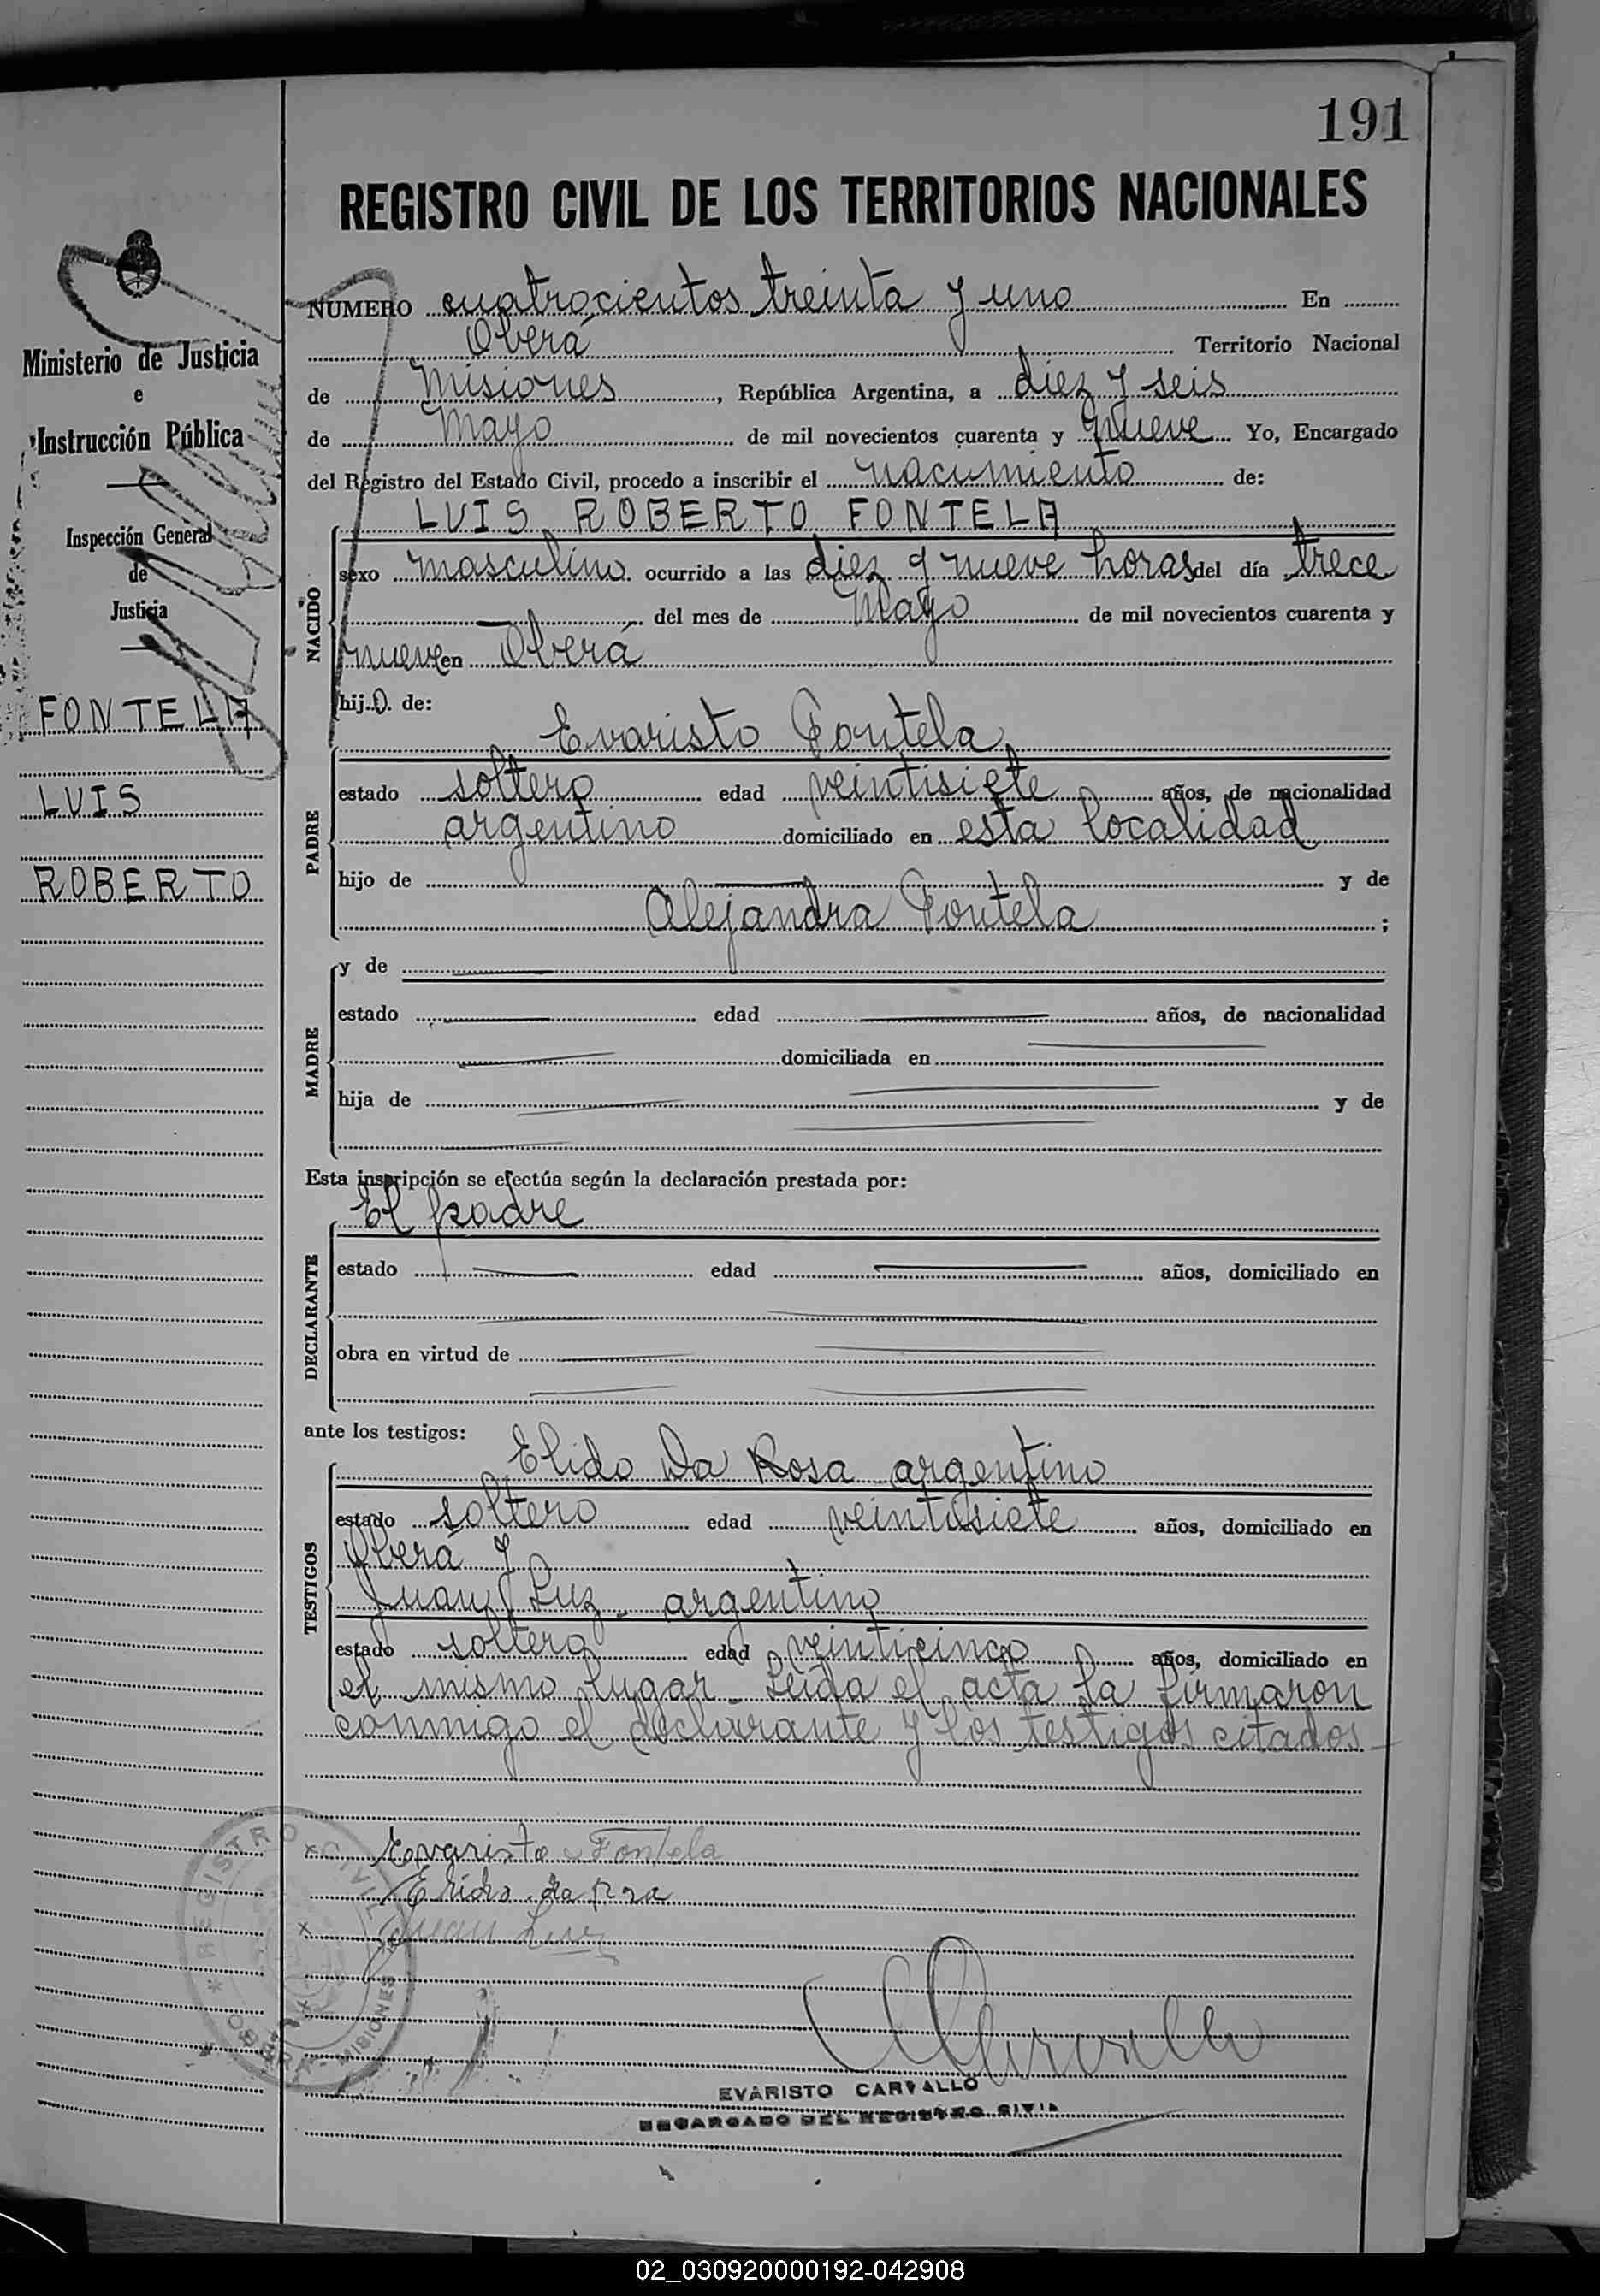 191
REGISTRO CIVIL DE LOS TERRITORIOS NACIONALES
Ministerio de Justicia
e
Instrucción Pública
Inspección General
de
Justicia
FONTELA
LUIS
ROBERTO
NUMERO cuatrocientos treinta y uno En
Oberá Territorio Nacional
de Misiones, República Argentina, a diez y seis
de Mayo de mil novecientos cuarenta y nueve Yo, Encargado
del Registro del Estado Civil, procedo a inscribir el nacimiento de:
LUIS ROBERTO FONTELA
NACIDO
sexo masculino ocurrido a las diez y nueve horas del día trece
del mes de Mayo de mil novecientos cuarenta y
nueve en Oberá
hijo de:
Evaristo Fontela
PADRE
estado soltero edad veintisiete años, de nacionalidad
argentino domiciliado en esta localidad
hijo de y de
Alejandra Fontela ;
MADRE
y de
estado edad años, de nacionalidad
domiciliada en
hija de y de
Esta inscripción se efectúa según la declaración prestada por:
El padre
DECLARANTE
estado edad años, domiciliado en
obra en virtud de
ante los testigos:
Elido Da Rosa argentino
TESTIGOS
estado soltero edad veintisiete años, domiciliado en
Oberá y
Juan Luz - argentino
estado soltero edad veinticinco años, domiciliado en
el mismo lugar - Leída el acta la firmaron
conmigo el declarante y los testigos citados -
Evaristo Fontela
Elido da
Juan Luz
REGISTRO CIVIL
OBERA - MISIONES
EVARISTO CARVALLO
ENCARGADO DEL REGISTRO CIVIL
02_030920000192-042908